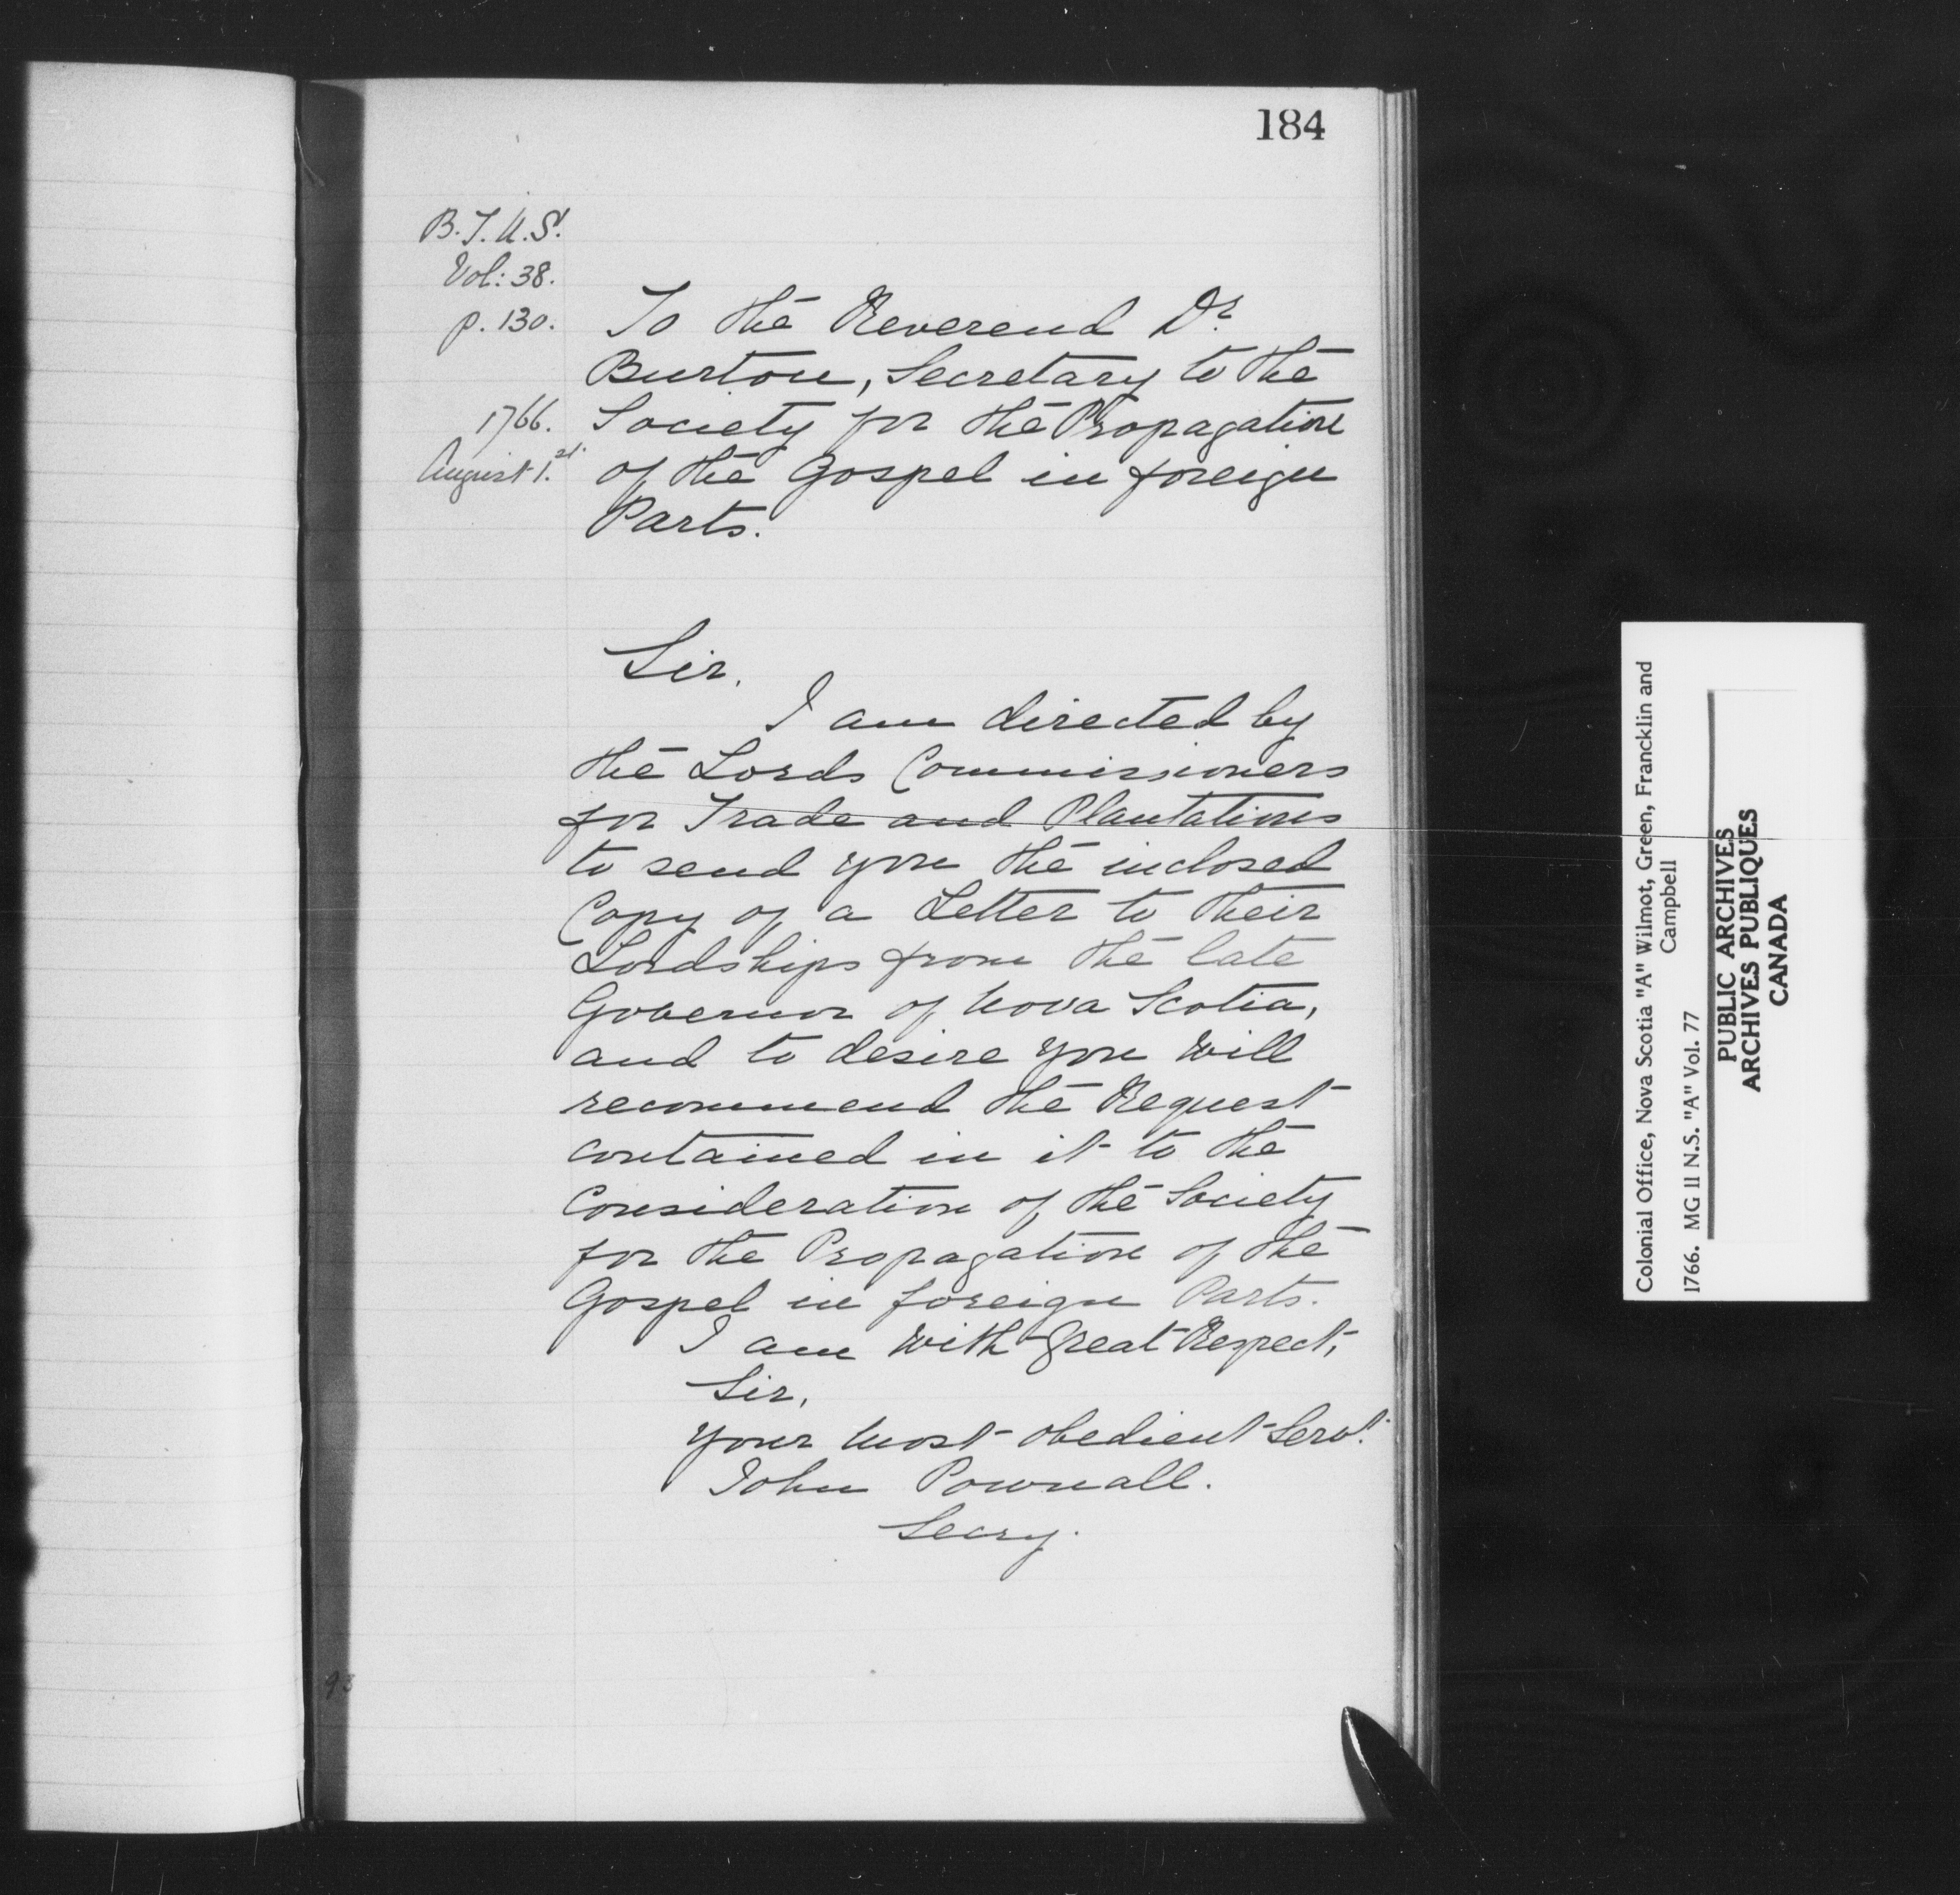 184
B.T.N.S.
Vol: 38.
p. 130.
1766.
August 1.st
To the Reverend Dr.
Burton, Secretary to the
Society for the Propagation
of the Gospel in foreign
Parts.
Sir,
I am directed by
the Lords Commissioners
for Trade and Plantations
to send you the inclosed
Copy of a Letter to their
Lordships from the late
Governor of Nova Scotia,
and to desire you will
recommend the Request
contained in it to the
Consideration of the Society
for the Propagation of the
Gospel in foreign Parts.
I am with great Respect,
Sir,
your most obedient Servt.
John Pownall.
Secry.
93
Colonial Office, Nova Scotia "A" Wilmot, Green, Francklin and
Campbell
1766. MG 11 N.S. "A" Vol. 77
PUBLIC ARCHIVES
ARCHIVES PUBLIQUES
CANADA